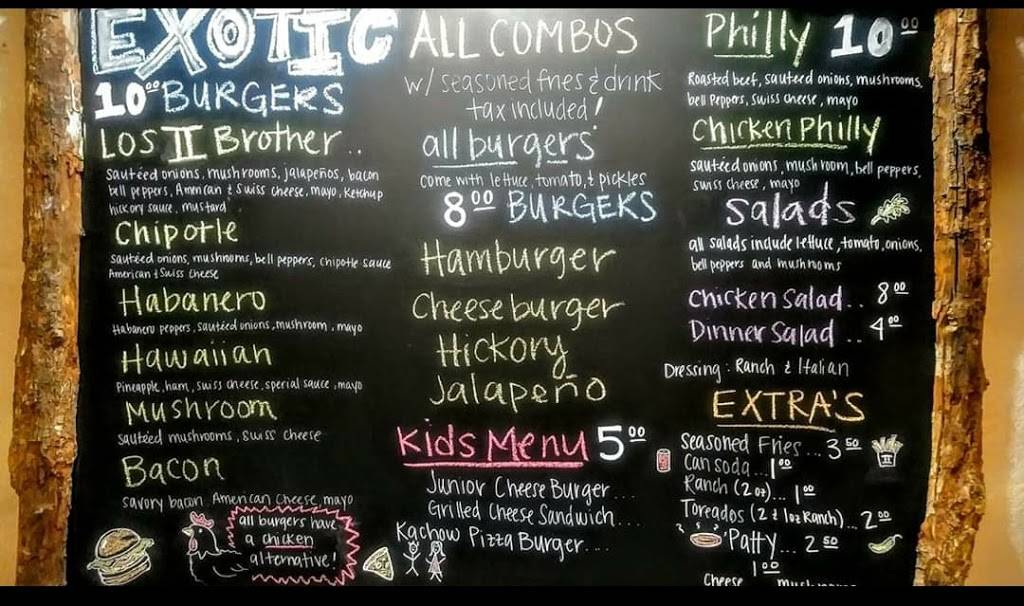 EXOTIC
10⁰⁰ BURGERS
LOS II Brother..
sautéed onions, mushrooms, jalapeños, bacon
bell peppers, American & Swiss cheese, mayo, ketchup
hickory sauce, mustard
Chipotle
sautéed onions, mushrooms, bell peppers, chipotle sauce
American & Swiss cheese
Habanero
Habanero peppers, sautéed onions, mushroom, mayo
Hawaiian
Pineapple, ham, swiss cheese, special sauce, mayo
Mushroom
sautéed mushrooms, swiss cheese
Bacon
savory bacon, American cheese, mayo
all burgers have
a chicken
alternative!
ALL COMBOS
w/ seasoned fries & drink
tax included!
all burgers
come with lettuce, tomato, & pickles
8⁰⁰ BURGERS
Hamburger
Cheeseburger
Hickory
Jalapeño
Kids Menu 5⁰⁰
Junior Cheese Burger....
Grilled Cheese Sandwich....
Kachow Pizza Burger....
Philly 10⁰⁰
Roasted beef, sautéed onions, mushrooms,
bell peppers, swiss cheese, mayo
Chicken Philly
sautéed onions, mushroom, bell peppers,
swiss cheese, mayo
Salads
all salads include lettuce, tomato, onions,
bell peppers and mushrooms
Chicken Salad.. 8⁰⁰
Dinner Salad.. 4⁰⁰
Dressing: Ranch & Italian
EXTRA'S
Seasoned Fries... 3⁵⁰
Can soda...1⁰⁰
Ranch (2oz)...1⁰⁰
Toreados (2 & 1oz Ranch)... 2⁰⁰
Patty... 2⁵⁰
1⁰⁰
Cheese mushrooms